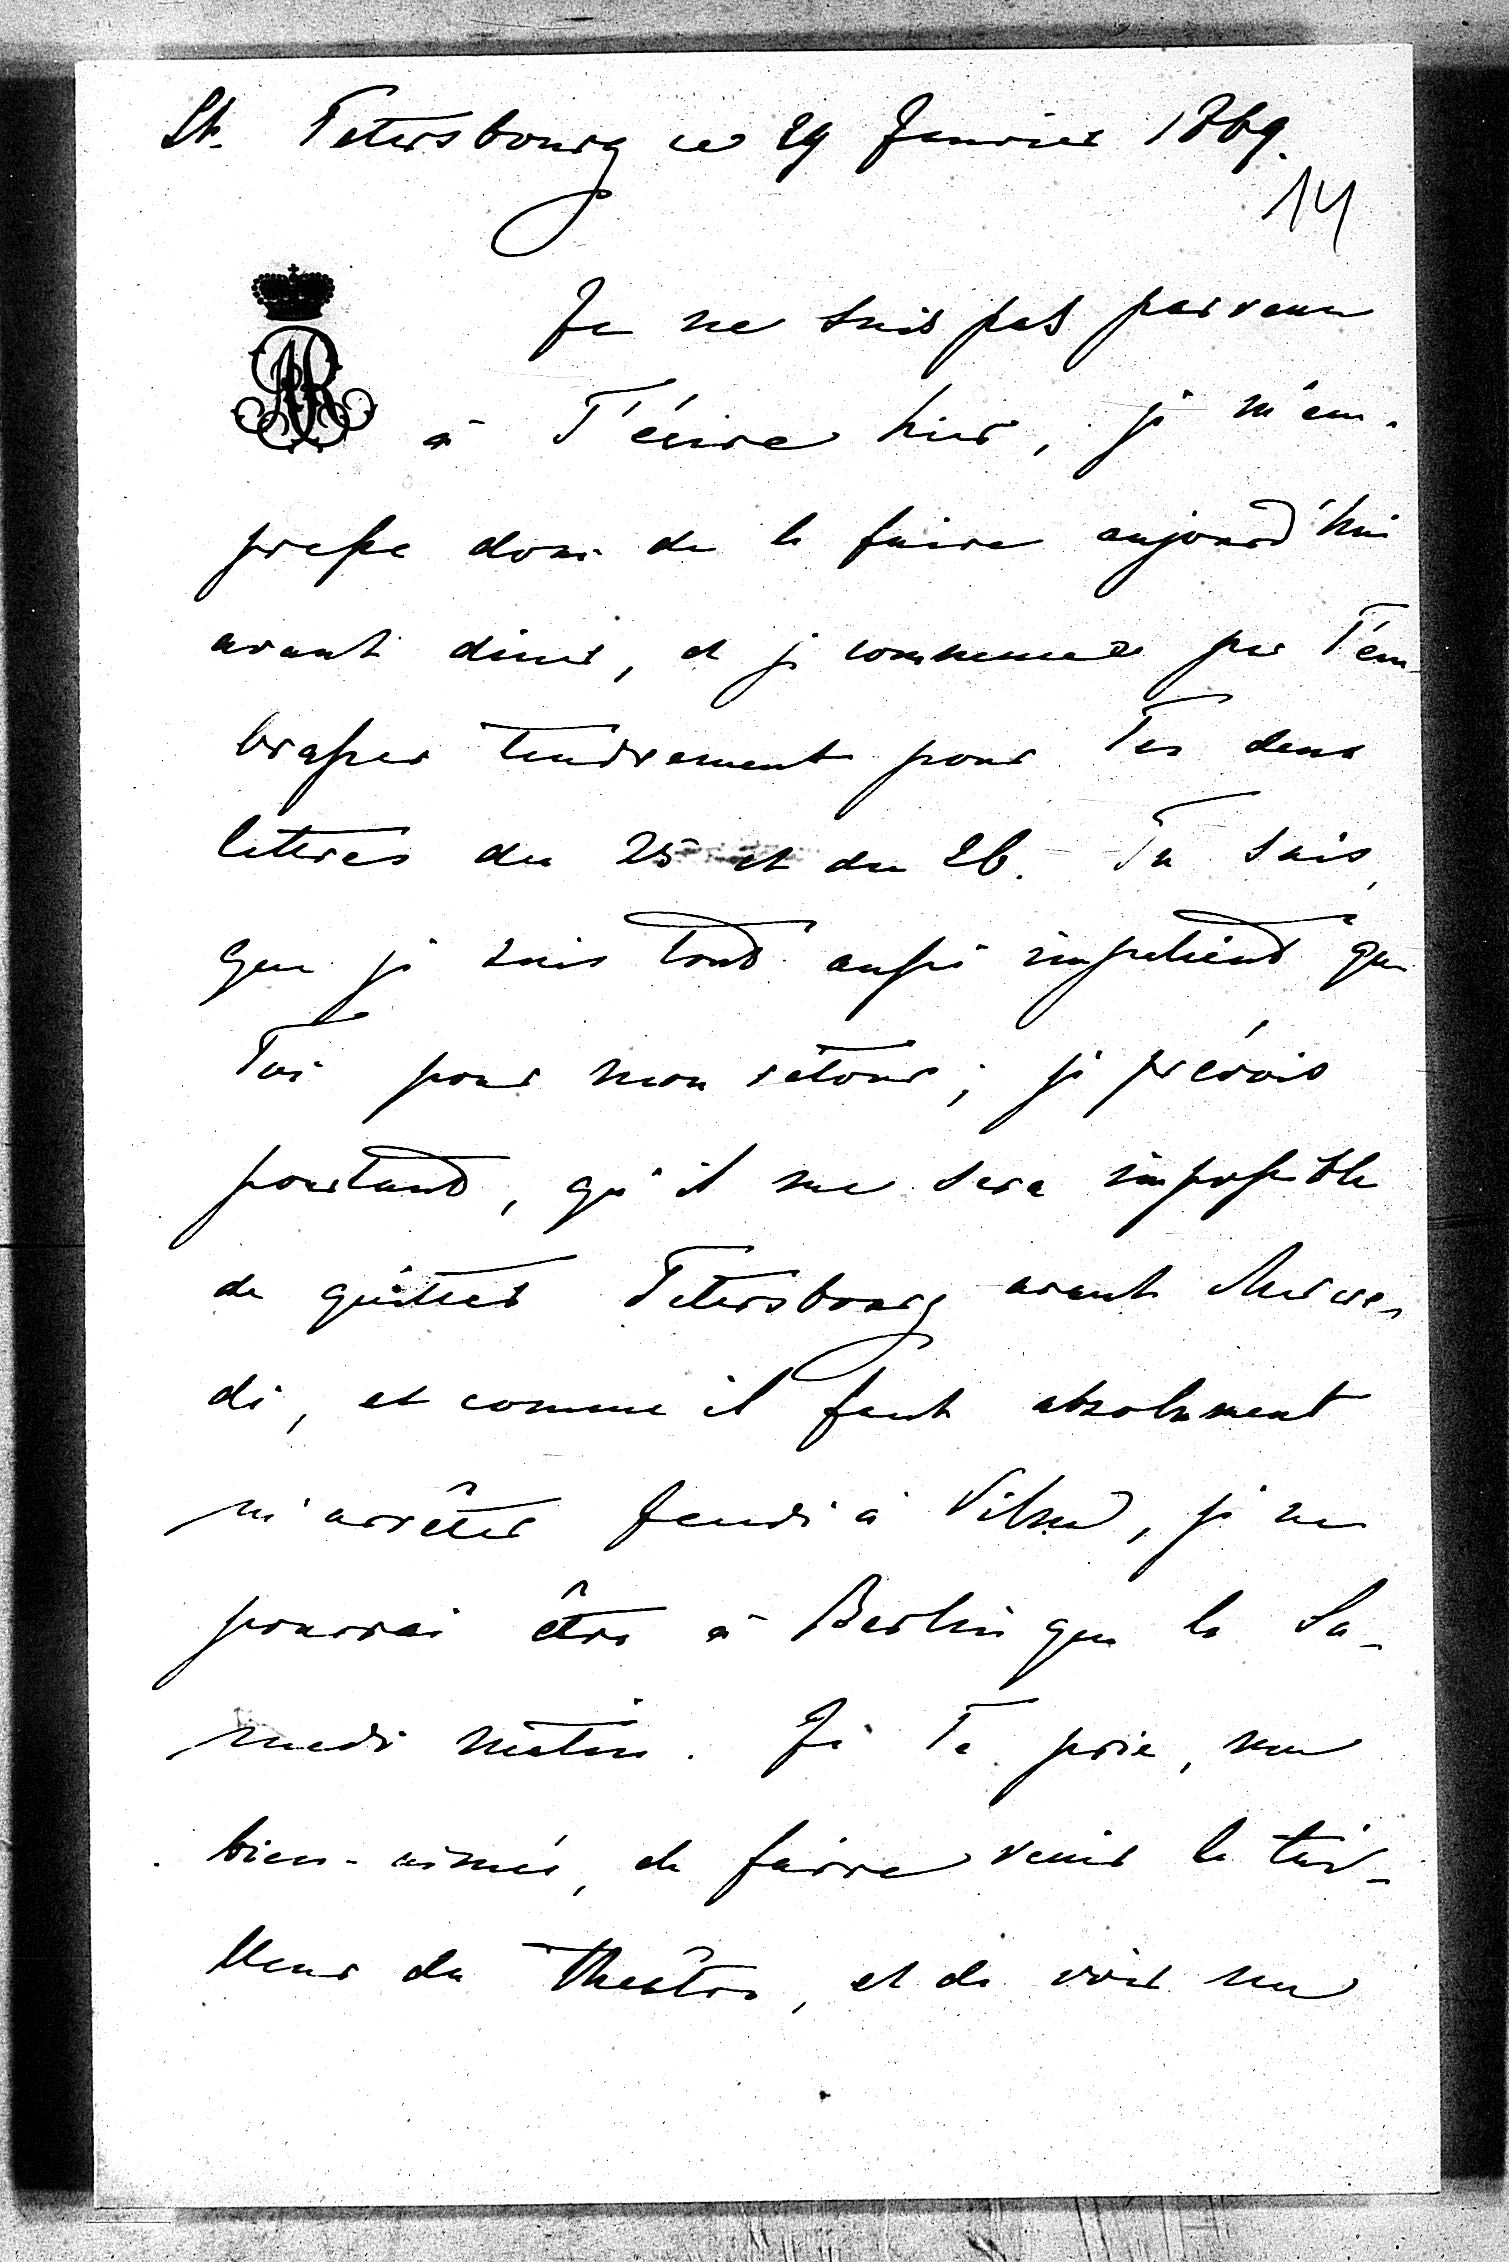 St. Petersbourg ce 29 Janvier 1869.
14
AR
Je ne suis pas parvenu
à T'écrire hier, je m'em-
presse donc de le faire aujourd'hui
avant diner, et je commence par T'em-
brasser tendrement pour Tes deux
lettres du 25 et du 26. Tu sais,
que je suis tout aussi impatient que
Toi pour mon retour; je prévois
pourtant, qu'il me sera impossible
de quitter Petersbourg avant Mercre-
di, et comme il faut absolument
m'arrêter Jeudi à Vilna, je ne
pourrai être à Berlin que le Sa-
medi matin. Je Te prie, mon
bien-aimée, de faire venir le tail-
leur du Théâtre, et de voir un